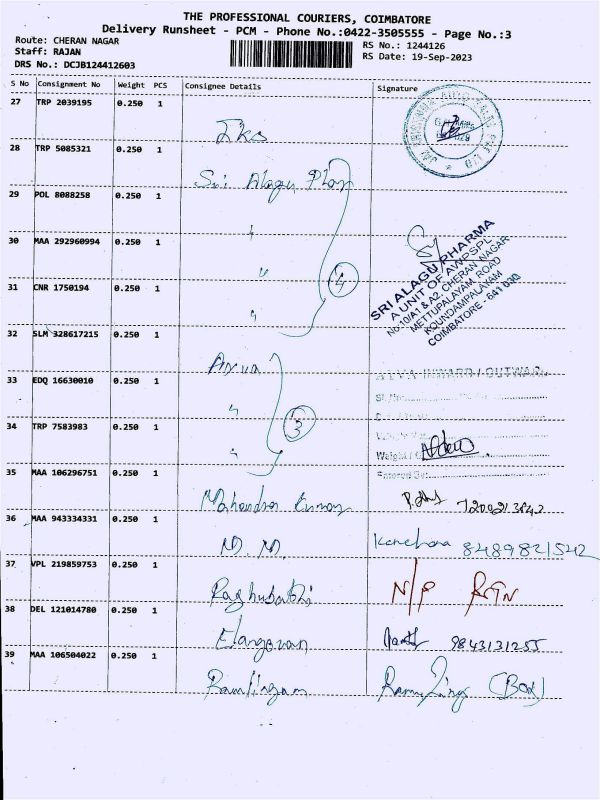 THE PROFESSIONAL COURIERS, COIMBATORE
Delivery Runsheet - PCM - Phone No.:0422-3505555 - Page No.:3
Route: CHERAN NAGAR
RS No.: 1244126
Staff: RAJAN
RS Date: 19-Sep-2023
DRS No.: DCJB124412603
S No Consignment No Weight PCS Consignee Details Signature
27 TRP 2039195 0.250 1
28 TRP 5085321 0.250 1 Sri Alagu Phar
29 POL 8088258 0.250 1 "
30 MAA 292960994 0.250 1 "
4
SRI ALAGU PHARMA
A UNIT OF AWPSPL
No.10/A1 & A2, CHERAN NAGAR
METTUPALAYAM ROAD
KOUNDAMPALAYAM
COIMBATORE - 641 030
31 CNR 1750194 0.250 1 "
32 SLM 328617215 0.250 1
33 EDQ 16630010 0.250 1 "
3
34 TRP 7583983 0.250 1 "
INWARD / OUTWARD
Weight /
Entered By:
35 MAA 106296751 0.250 1 Mahendra Kumar
36 MAA 943334331 0.250 1 M. M. 8489821542
37 VPL 219859753 0.250 1 Raghubathi N/P RTN
38 DEL 121014780 0.250 1 Elangovan 9843131255
39 MAA 106504022 0.250 1 Ramlingam (Box)